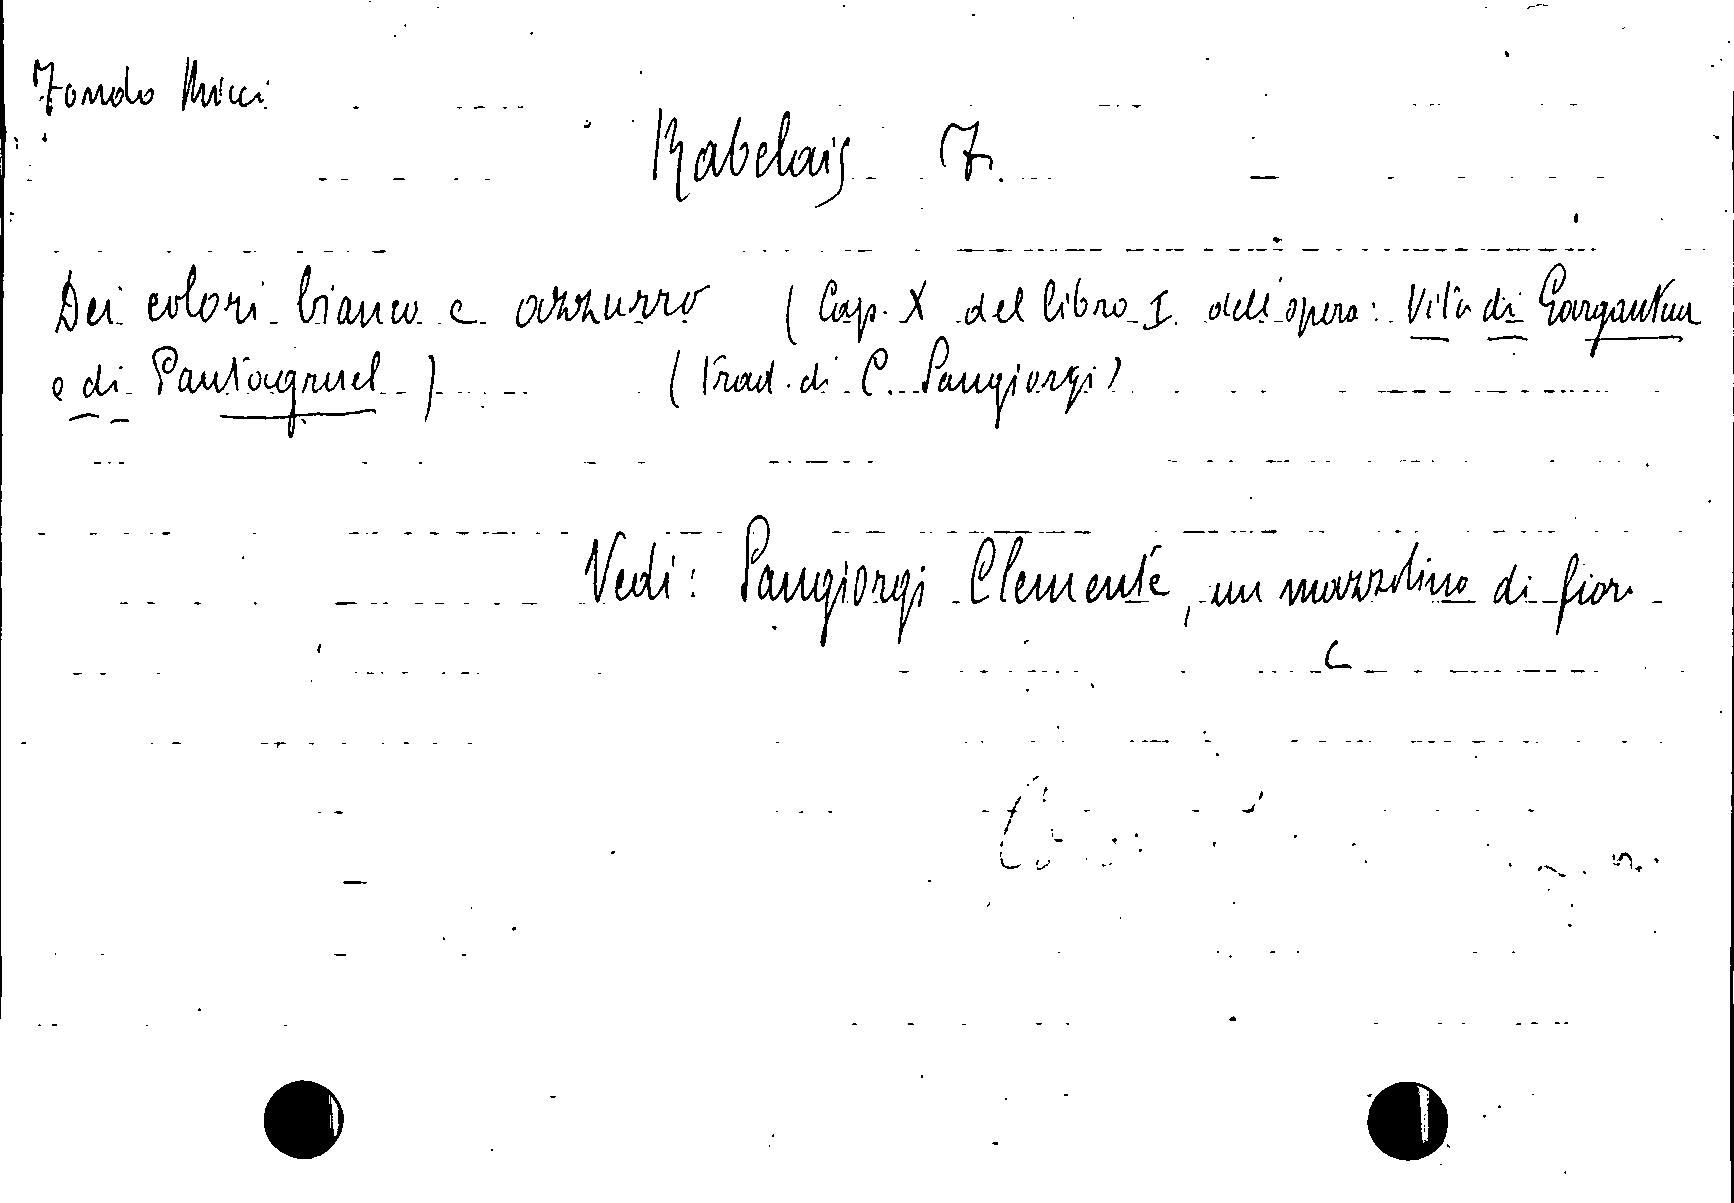 Fondo Micci
Rabelais F.
Dei colori bianco e azzurro (Cap. X del libro I dell'opera: Vita di Gargantua
e di Pantagruel) (Trad. di C. Sangiorgi)
Vedi: Sangiorgi Clemente, un mazzolino di fiori